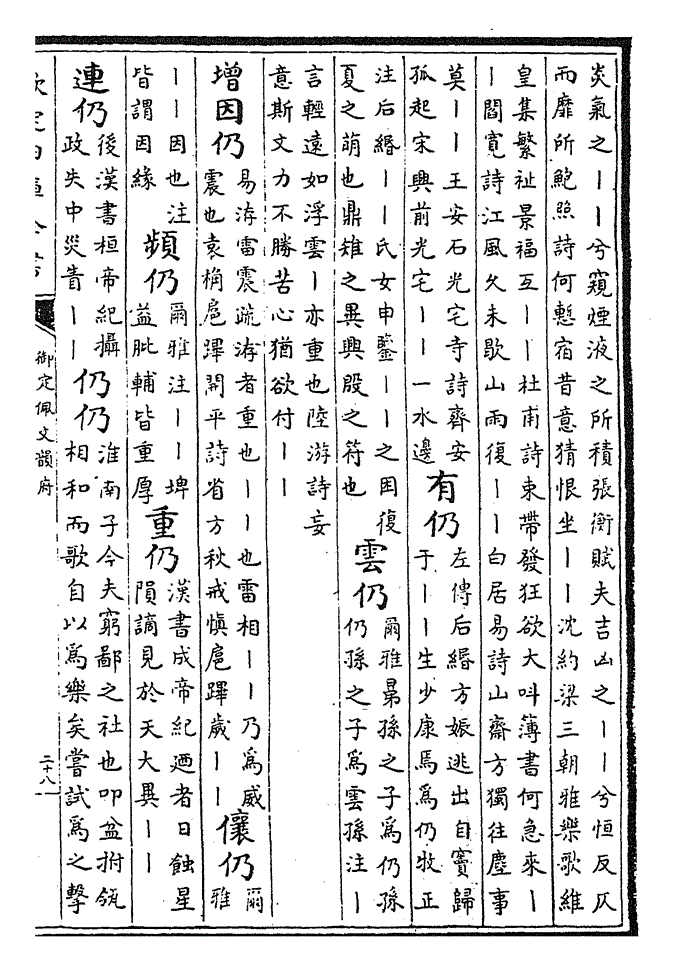 炎氣之丨丨兮窺煙液之所積張衡賦夫吉凶之丨丨兮恒反仄
而靡所鮑照詩何慙宿昔意猜恨坐丨丨沈約梁三朝雅樂歌維
皇集繁祉景福互丨丨杜甫詩束帶發狂欲大叫薄書何急來丨
丨閻寛詩江風久未歇山雨復丨丨白居易詩山齋方獨往塵事
莫丨丨王安石光宅寺詩齊安
孤起宋興前光宅丨丨一水邊
有仍
左傳后緡方娠逃出自竇歸
于丨丨生少康焉為仍牧正
注后緡丨丨氏女申鑒丨丨之困復
夏之萌也鼎雉之異興殷之符也
雲仍
爾雅晜孫之子為仍孫
仍孫之子為雲孫注丨
言輕遠如浮雲丨亦重也陸游詩妄
意斯文力不勝苦心猶欲付丨丨
增因仍
易洊雷震疏洊者重也丨丨也雷相丨丨乃為威
震也袁桷扈蹕開平詩省方秋戒慎扈蹕歲丨丨
儴仍
爾
雅
丨丨因也注
皆謂因緣
頻仍
爾雅注丨丨埤
益肶輔皆重厚
重仍
漢書成帝紀迺者日蝕星
隕謫見於天大異丨丨
連仍
後漢書桓帝紀攝
政失中災眚丨丨
仍仍
淮南子今夫窮鄙之社也叩盆拊瓴
相和而歌自以為樂矣嘗試為之擊
欽定四庫全書
御定佩文韻府
二十八